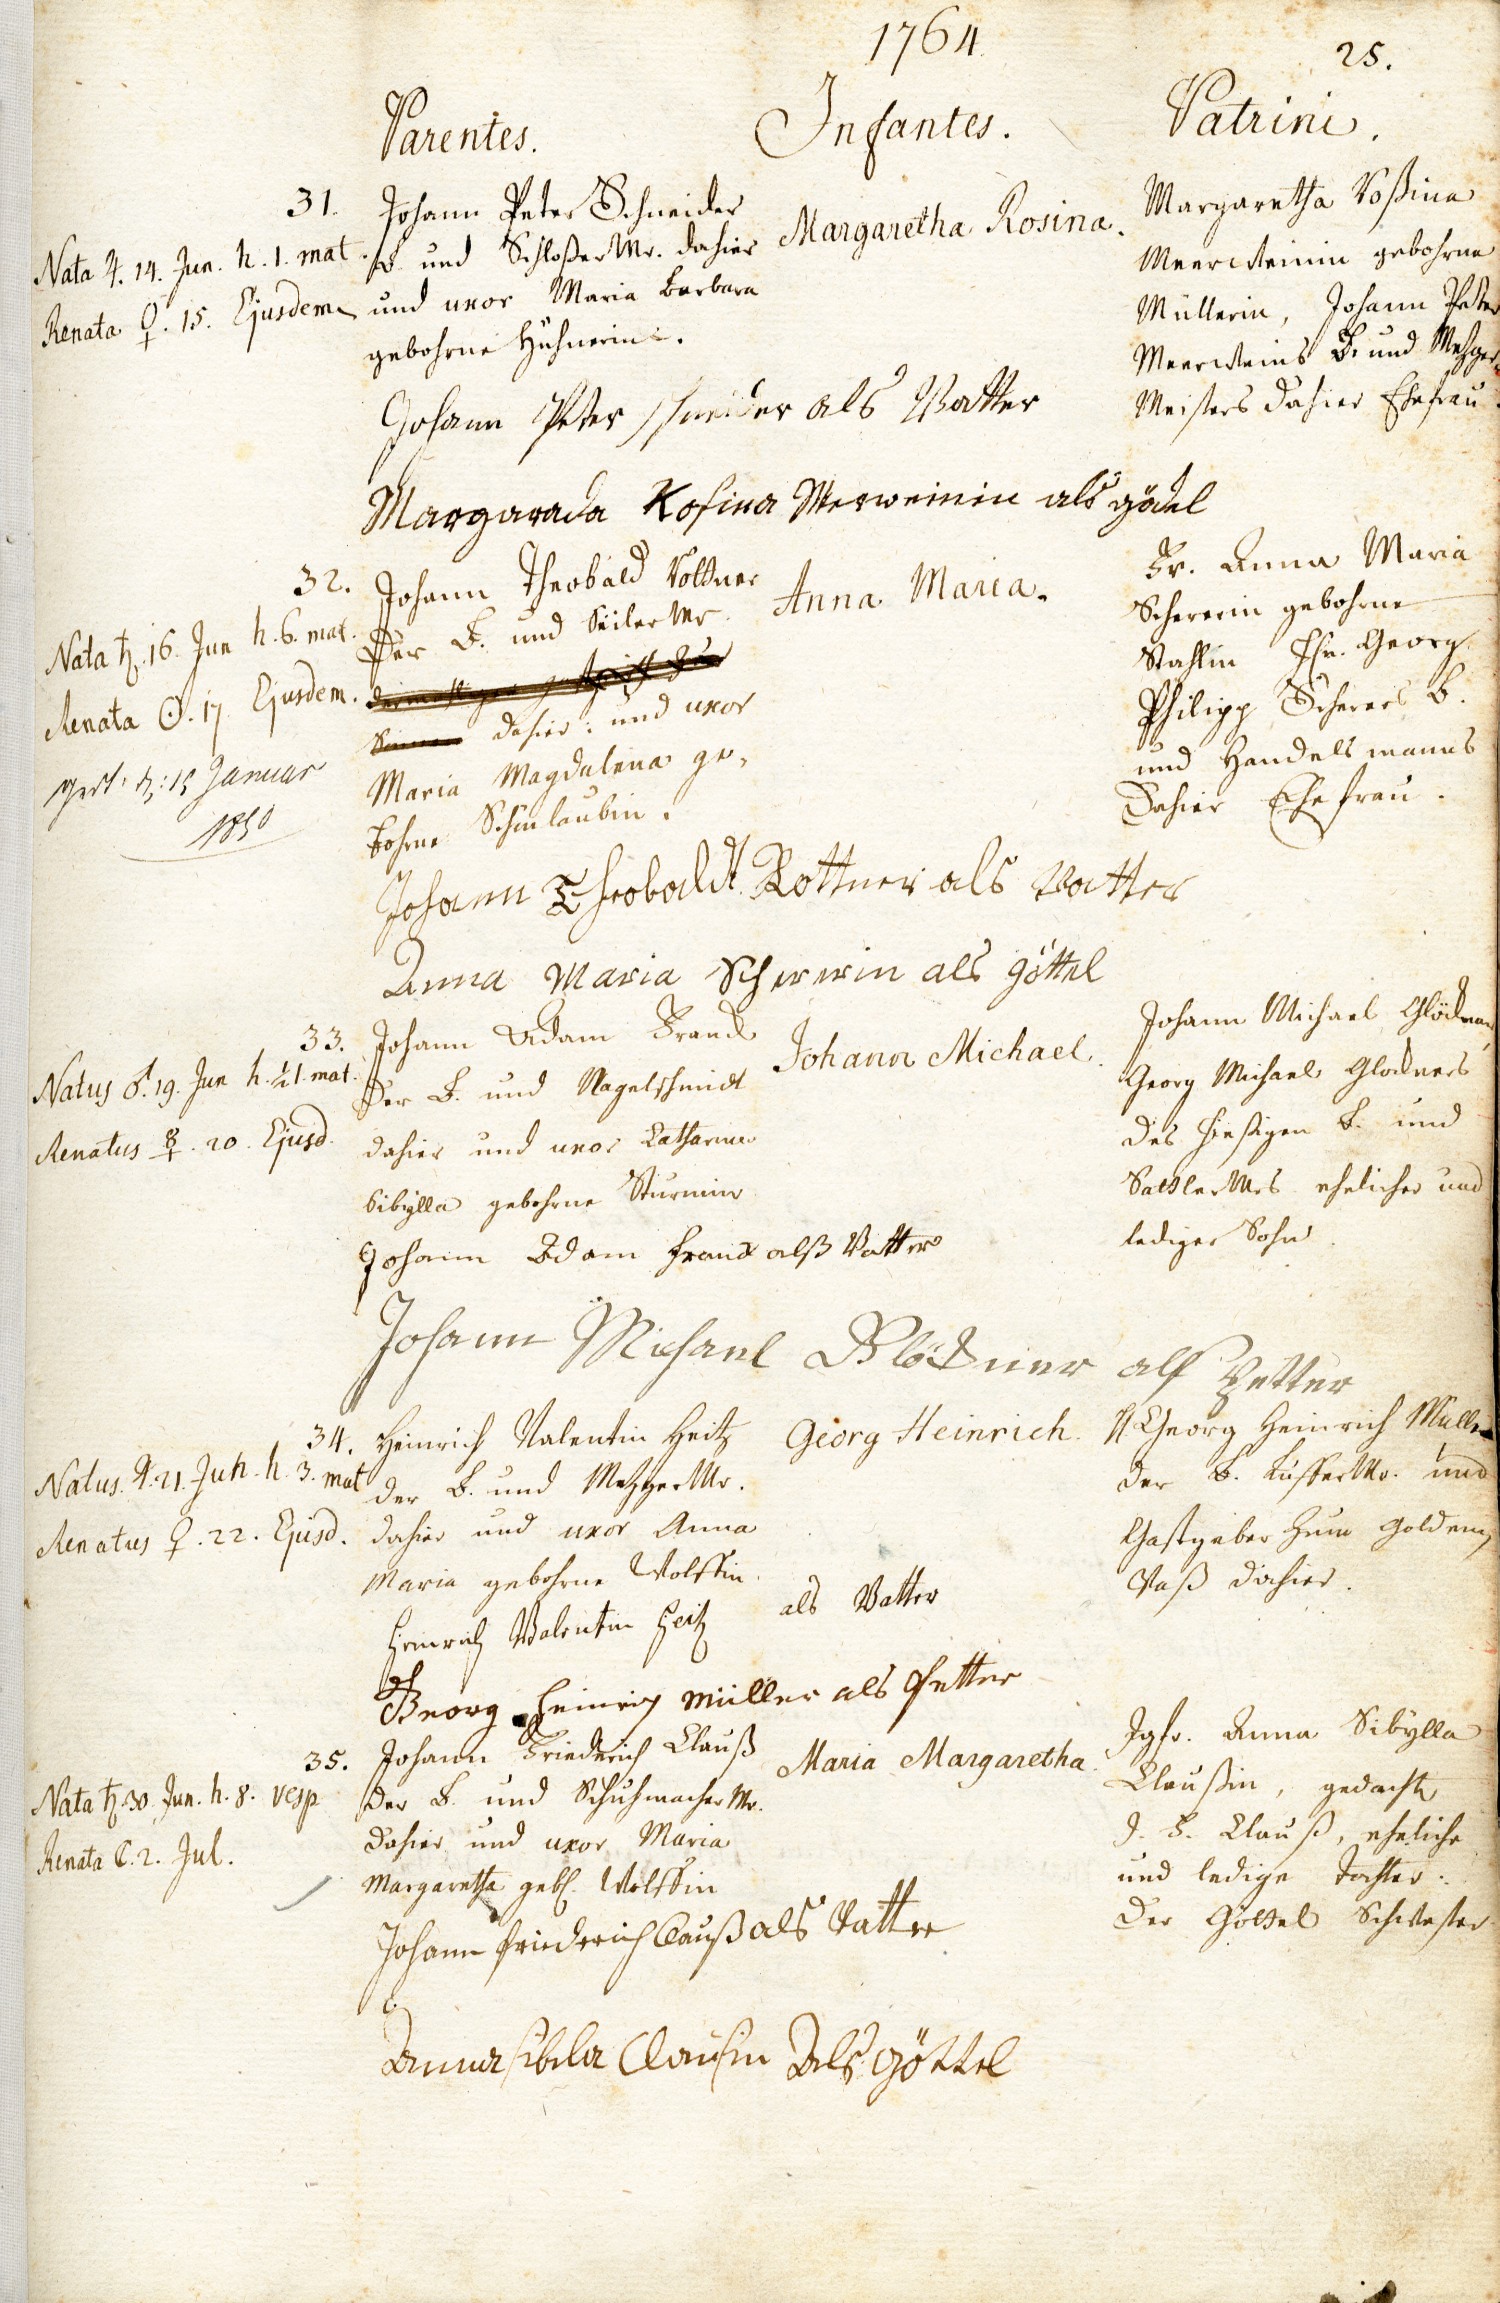 1764.
25.
Parentes.
Infantes.
Patrini.
31.
Nata ♃. 14. Jun. h. 1. mat.
Renata ♀. 15. Ejusdem
Johann Peter Schneider
B. und SchloßerMr. dahier
und uxor Maria Barbara
gebohrne Hühnerin.
Margaretha Rosina.
Margaretha Roßina
Meerweinin gebohrne
Müllerin, Johann Peter
Meerweins B. und Metzger
Meisters dahier Ehefrau.
Johann Peter schneider als Vatter
Margarada Rosina Merweinin als gödel
32.
Nata ♄. 16. Jun h. 6. mat.
Renata ☉. 17 Ejusdem.
gest. d: 15 Januar
1850
Johann Theobald Rottner
Der B. und SeilerMr.
dahier: und uxor
Maria Magdalena ge-
bohrne Schmlaubin.
Anna Maria.
Fr. Anna Maria
Schererin gebohrne
Stahlin Hr. Georg
Philipp Scherers B.
und Handelsmanns
Dahier Ehefrau.
Johann Theobaldt Rottner als Vatter
Anna Maria Schererin als göttel
33.
Natus ♂. 19. Jun h. ½1. mat.
Renatus ☿. 20. Ejusd.
Johann Adam Frand
Der B. und Nagelschmidt
dahier und uxor Catharina
Sibylla gebohrne Sturmin
Johann Michael.
Johann Michael Glöckner,
Georg Michael Glöckners
des hiesigen B. und
SattlerMrs ehelicher und
lediger Sohn.
Johann Adam frand alß Vatter
Johann Michael Glöckner als Petter
34.
Natus. ♃. 21. Jun. h. 3. mat
Renatus ♀. 22. Ejusd.
Heinrich Valentin Heitz
der B. und MetzgerMr.
dahier und uxor Anna
Maria gebohrne Wolffin.
Georg Heinrich.
H. Georg Heinrich Müller
der B. KüfferMr. und
Gastgeber Zum goldenen
Vaß dahier.
Heinrich Valentin Heitz als Vatter
Georg Heinrich müller als Petter
35.
Nata ♄. 30. Jun. h. 8. vesp
Renata ☾. 2. Jul.
Johann Friederich Clauß
der B. und SchuhmacherMr.
dahier und uxor Maria
Margaretha gebh. Wolffin
Maria Margaretha.
Jgfr. Anna Sibylla
Claußin, gedacht
J. F. Clauß, eheliche
und ledige Tochter:
Der Göttel Schwester
Johann friederich Clauß als Vatter
Anna sibila Clausin Als göttel